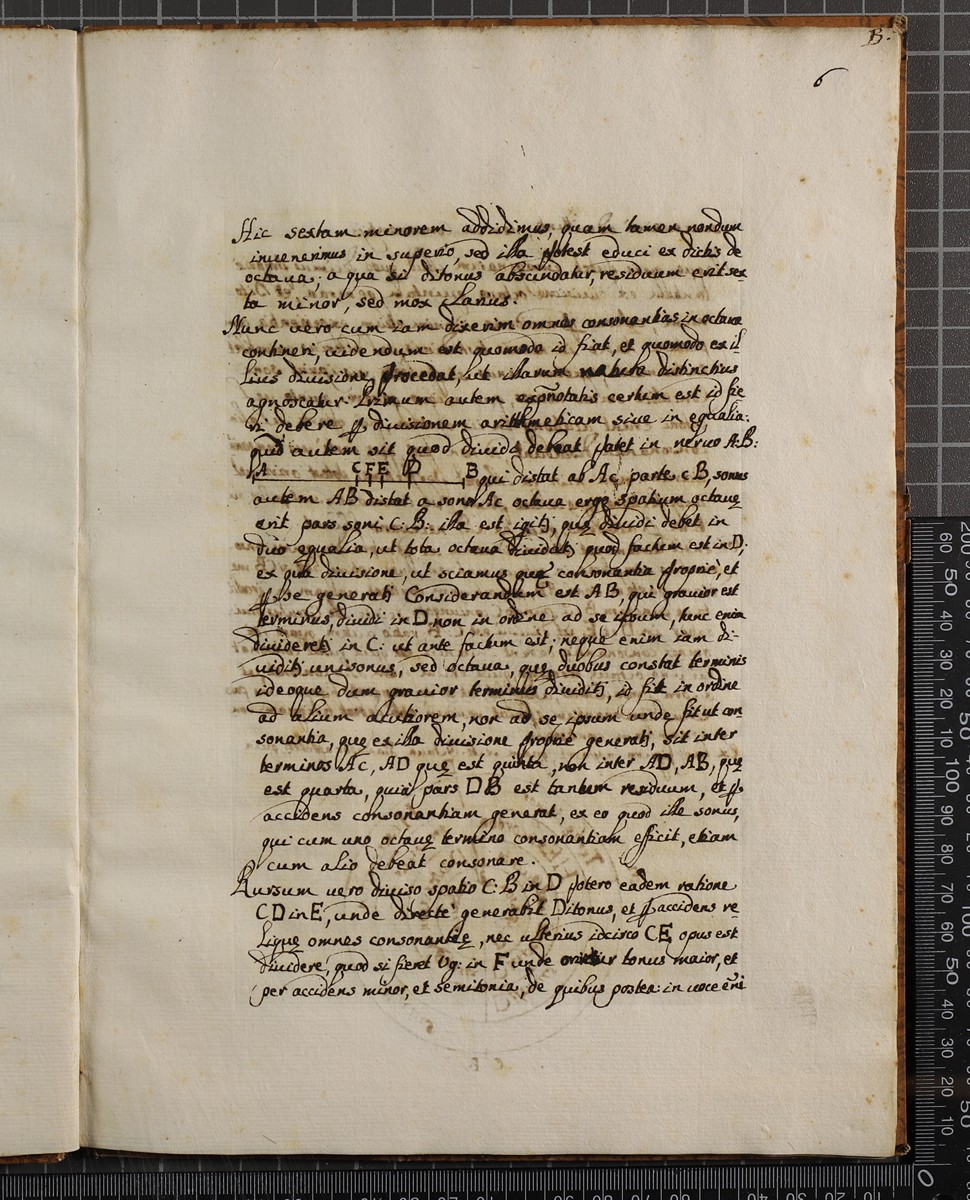 B.
6
Hic sextam minorem addidimus, quam tamen nondum
inuenerimus in superio, sed illa potest educi ex dictis de
octaua; a qua si ditonus abscindatur, residuum erit sex
ta minor, sed mox clarius.
Nunc uero cum iam dixerim omnes consonantias in octaua
contineri, uidendum est quomodo id fiat, et quomodo ex il
lius diuisione procedat, ut illarum natura distinctius
agnoscatur. Primum autem ex p̃notatis certum est id fie
ri debere ꝑ diuisionem arithmeticam siue in equalia:
quid autem sit quod diuidi debeat patet in neruo A:B:
A C F E D B qui distat ab Ac, parte cB, sonus
autem AB distat a sono Ac octaua ergo spatium octauę
erit pars soni C:B: illa est igitʒ, quę diuidi debet in
duo equalia, ut tota octaua diuidatʒ quod factum est in D;
ex qua diuisione, ut sciamus quę consonantia proprie, et
ꝑ se generatʒ Considerandum est AB, qui grauior est
terminus, diuidi in D non in ordine ad se ipsum, tunc enim
diuideretʒ in C: ut ante factum est; neque enim iam di-
uiditʒ unisonus, sed octaua, quę duobus constat terminis
ideoque dum grauior terminus diuiditʒ, id fit in ordine
ad alium acutiorem, non ad se ipsum unde fit ut con
sonantia, quę ex illa diuisione proprie generatʒ, sit inter
terminos Ac, AD quę est quinta, non inter AD, AB, quę
est quarta, quia pars DB est tantum residuum, et ꝑ
accidens consonantiam generat, ex eo quod ille sonus,
qui cum uno octauę termino consonantiam efficit, etiam
cum alio debeat consonare.
Rursum uero diuiso spatio C:B in D potero eadem ratione
CD in E, unde directè generabit Ditonus, et ꝑ accidens re
liquę omnes consonantię, nec ulterius idcirco CE opus est
diuidere, quod si fieret Vg: in F unde oritur tonus maior, et
per accidens minor, et semitonia, de quibus postea: in uoce eñi